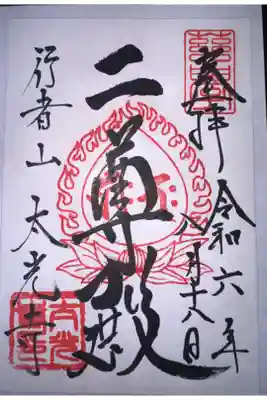 奉拝
令和六年
八月十八日
二尊
行者山 太光寺